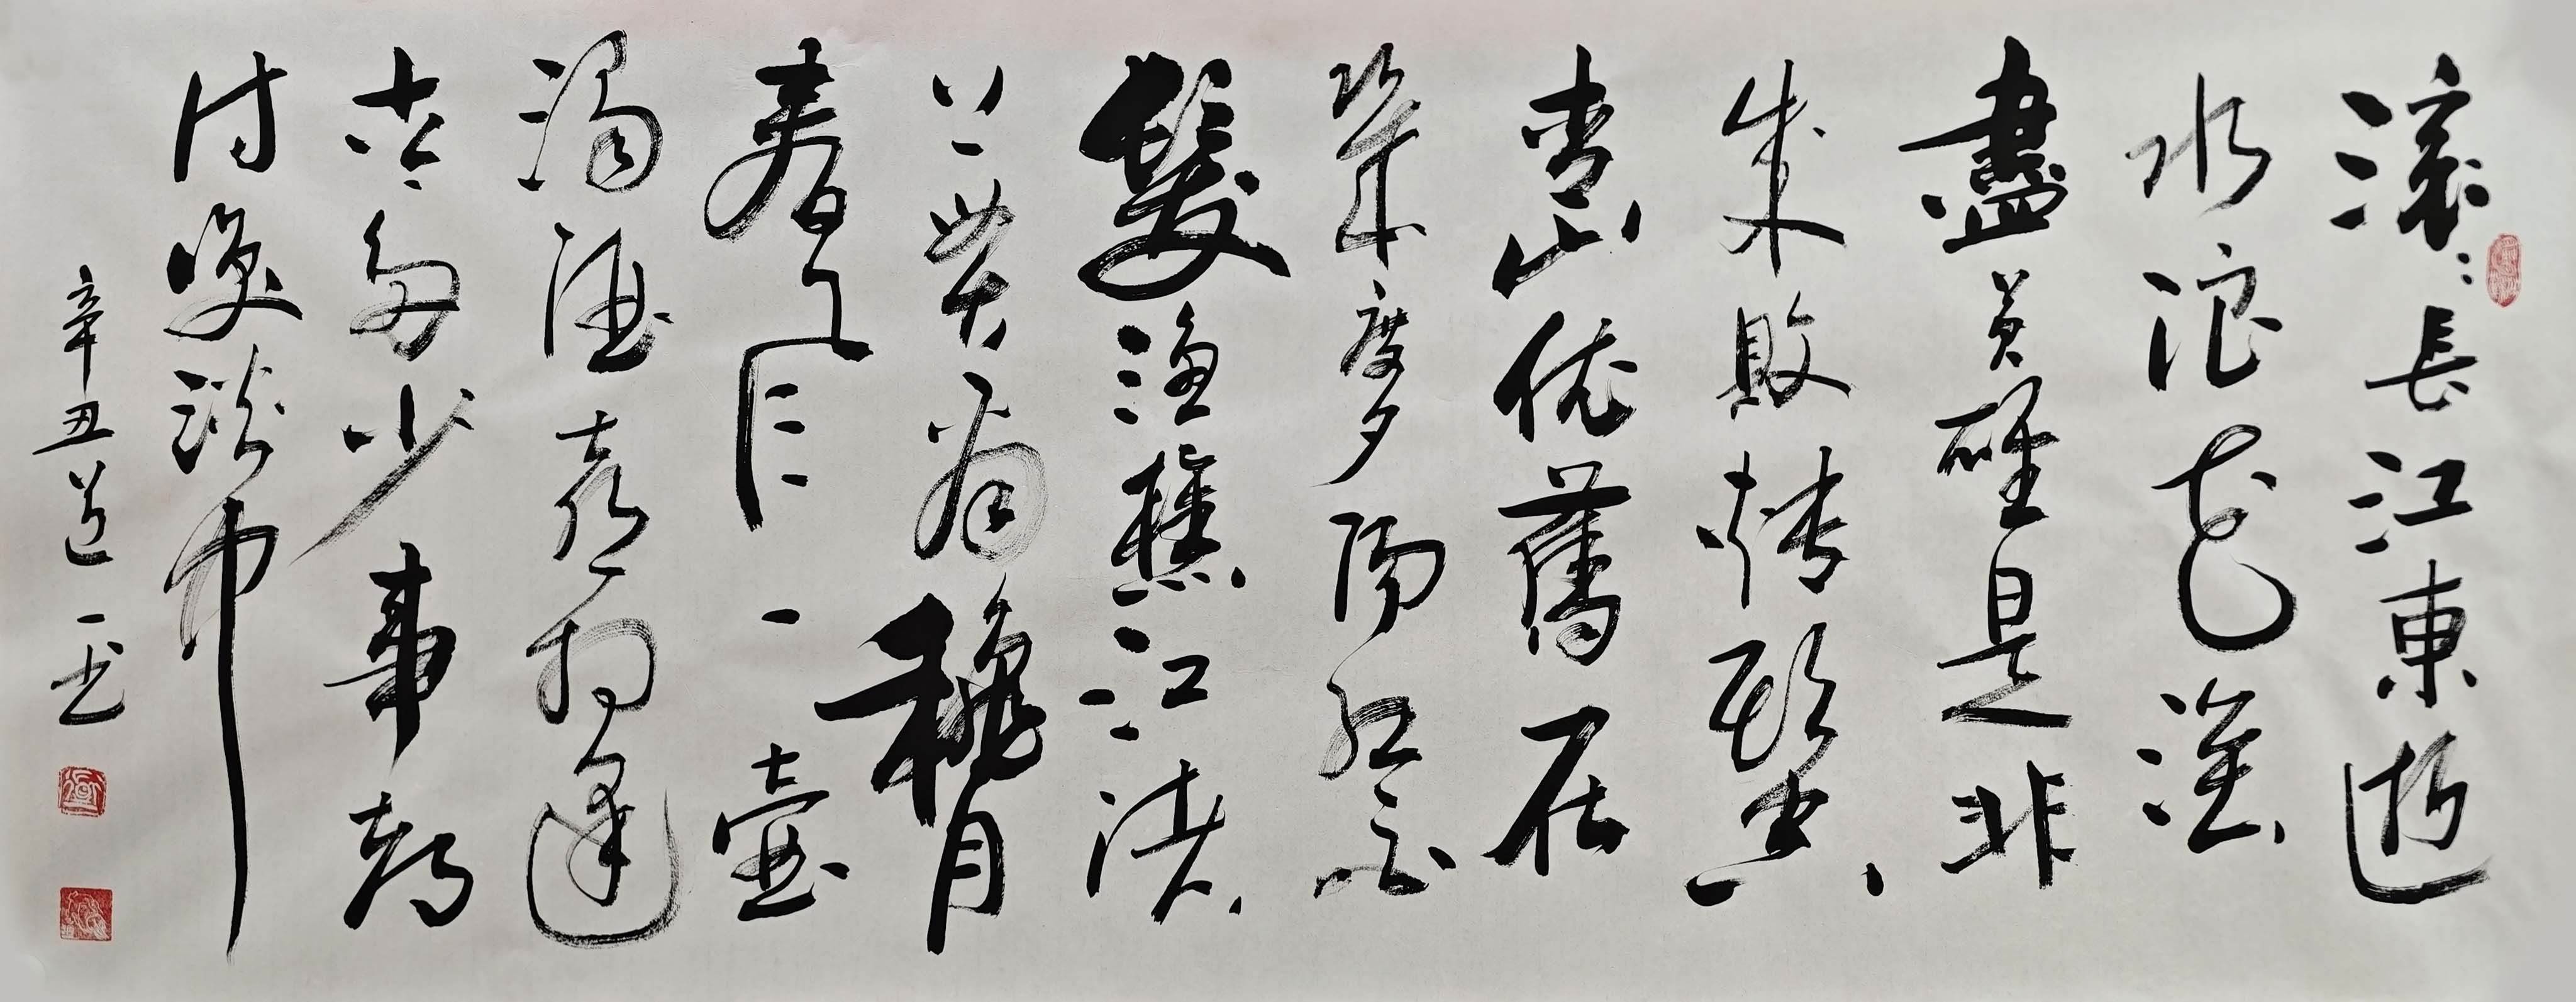 滚滚長江東逝
水浪花淘
盡英雄是非
成敗轉頭空
青山依舊在
幾度夕陽紅白
髮漁樵江渚
上慣看秋月
春風一壺
濁酒喜相逢
古今多少事都
付笑談中
辛丑道一书